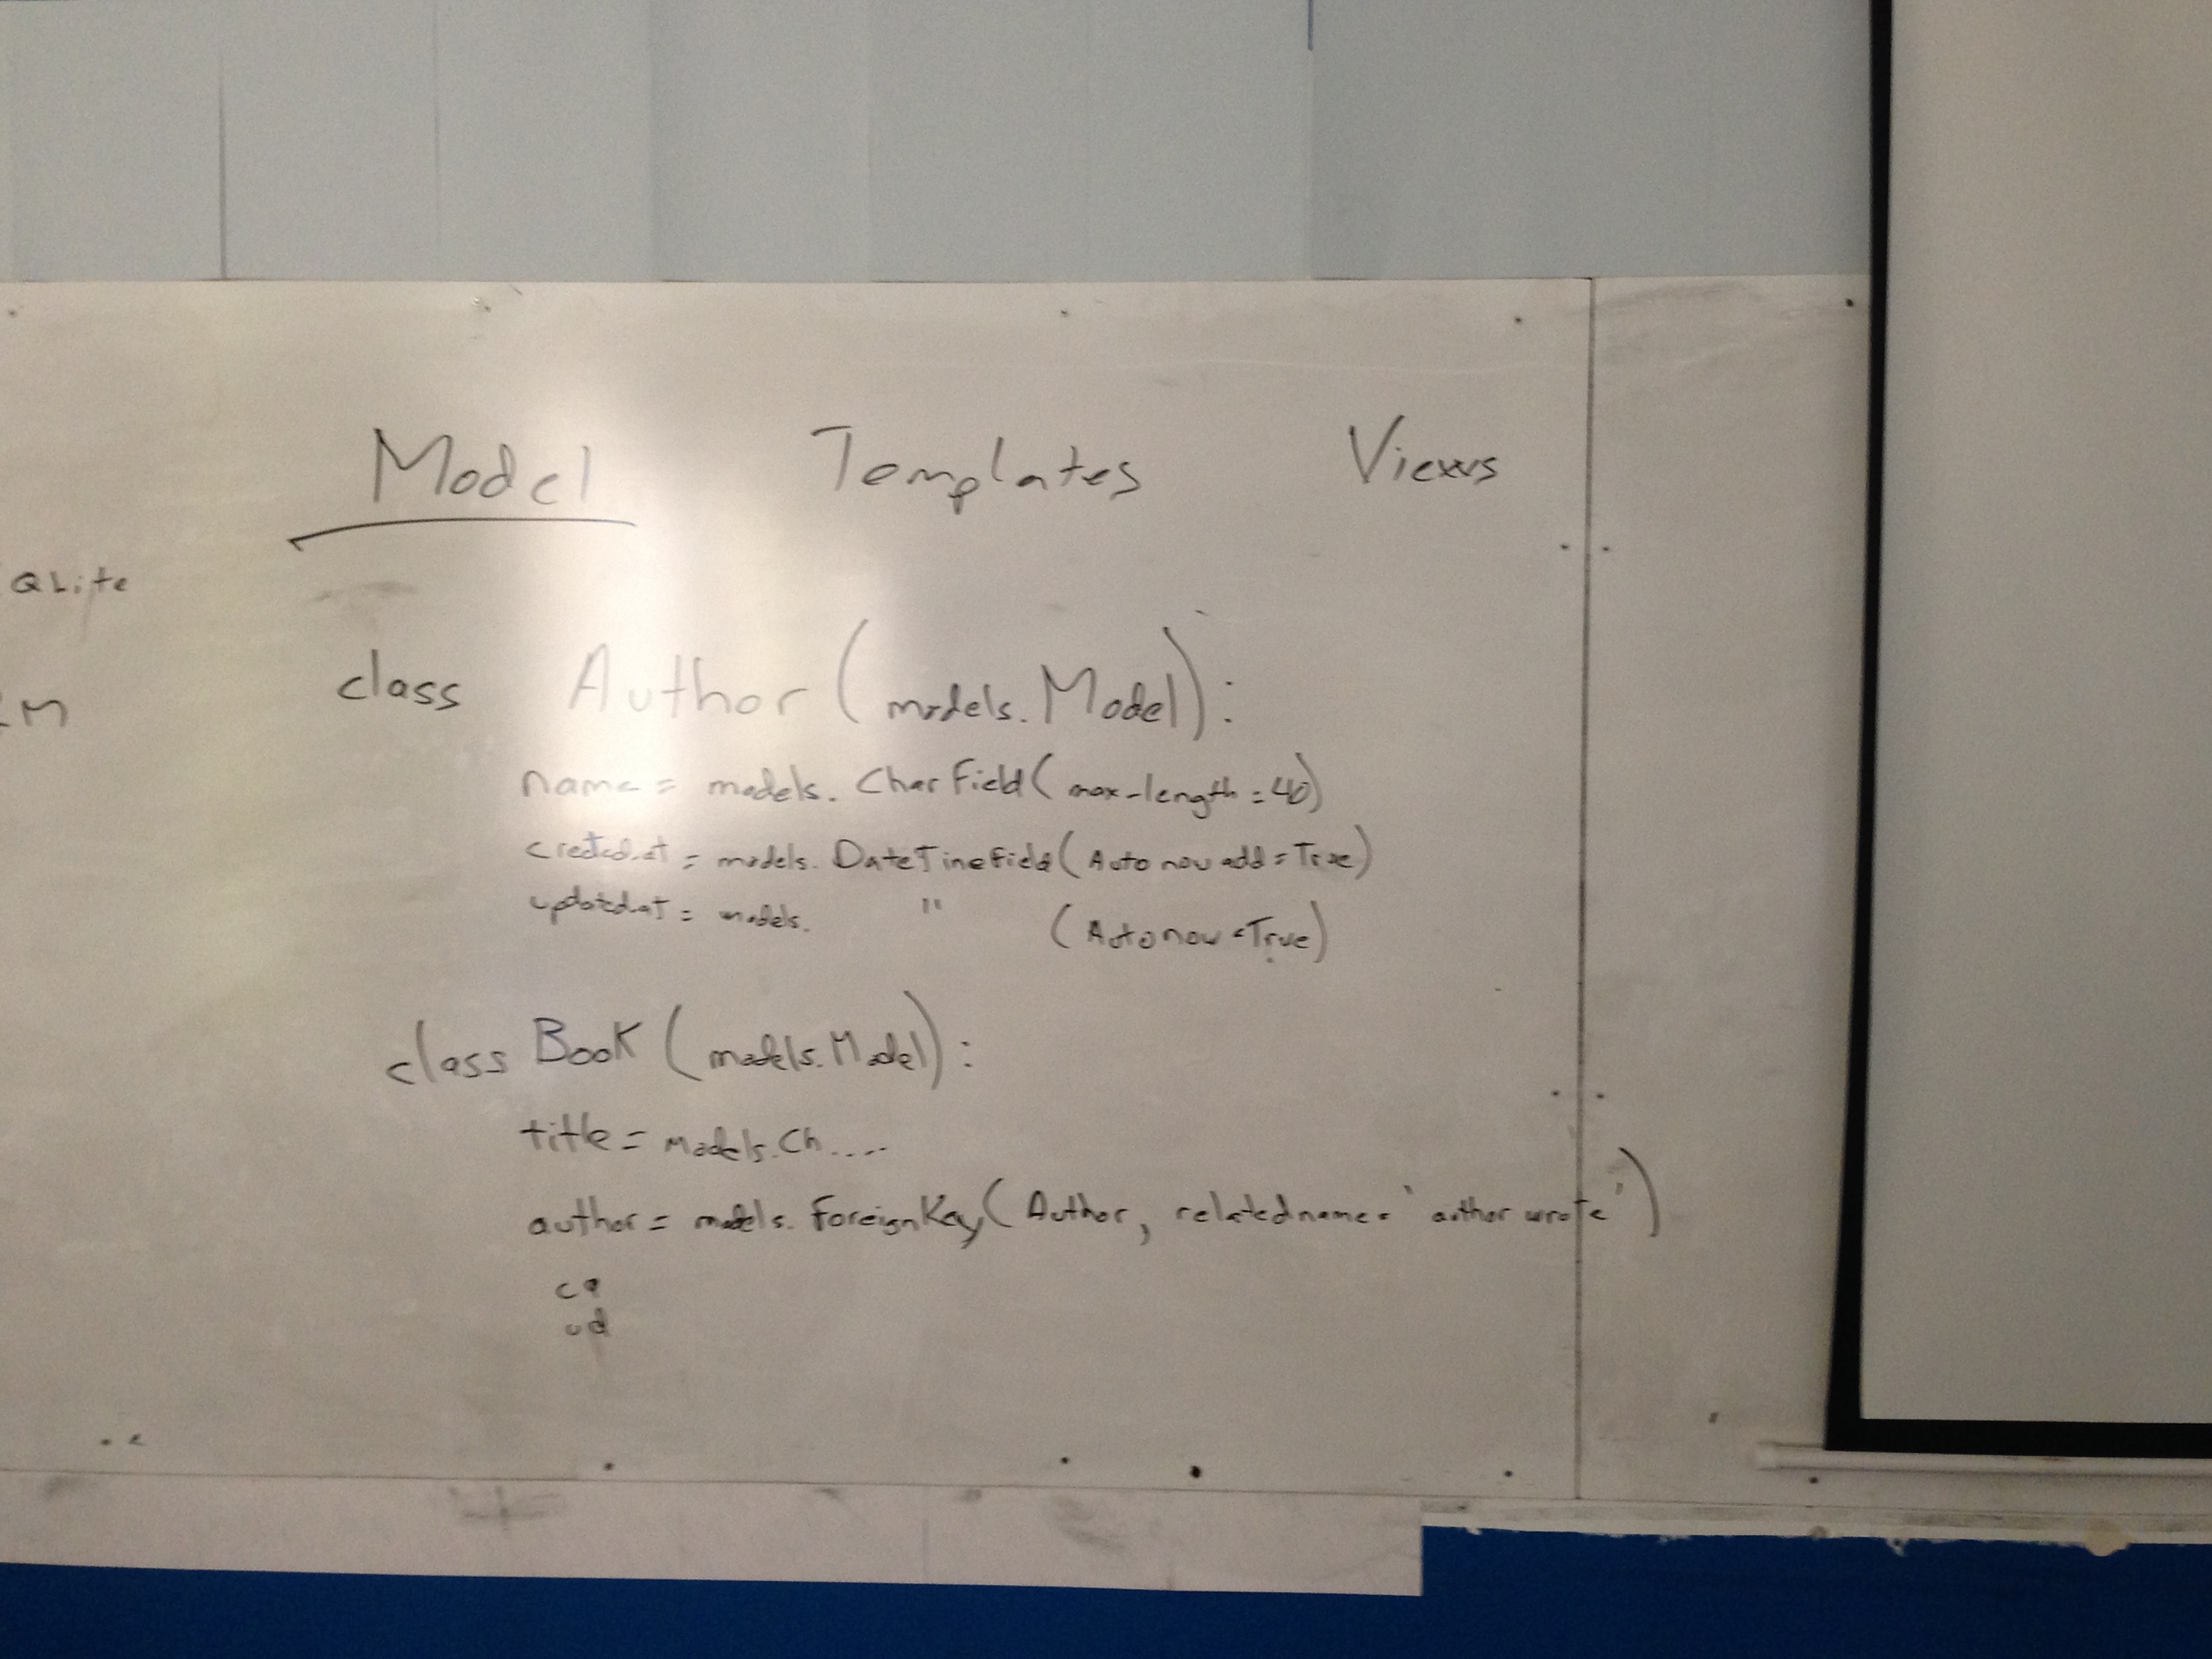 Model Templates Views
QLite
class Author (models.Model):
M
name = models. CharField (max-length=40)
created.at = models. DateTimeField (Auto now add = True)
updated.at = models. " (Auto now = True)
class Book (models.Model):
title = Models.Ch....
author = models. ForeignKey (Author, relatedname= 'author wrote')
ca
ud